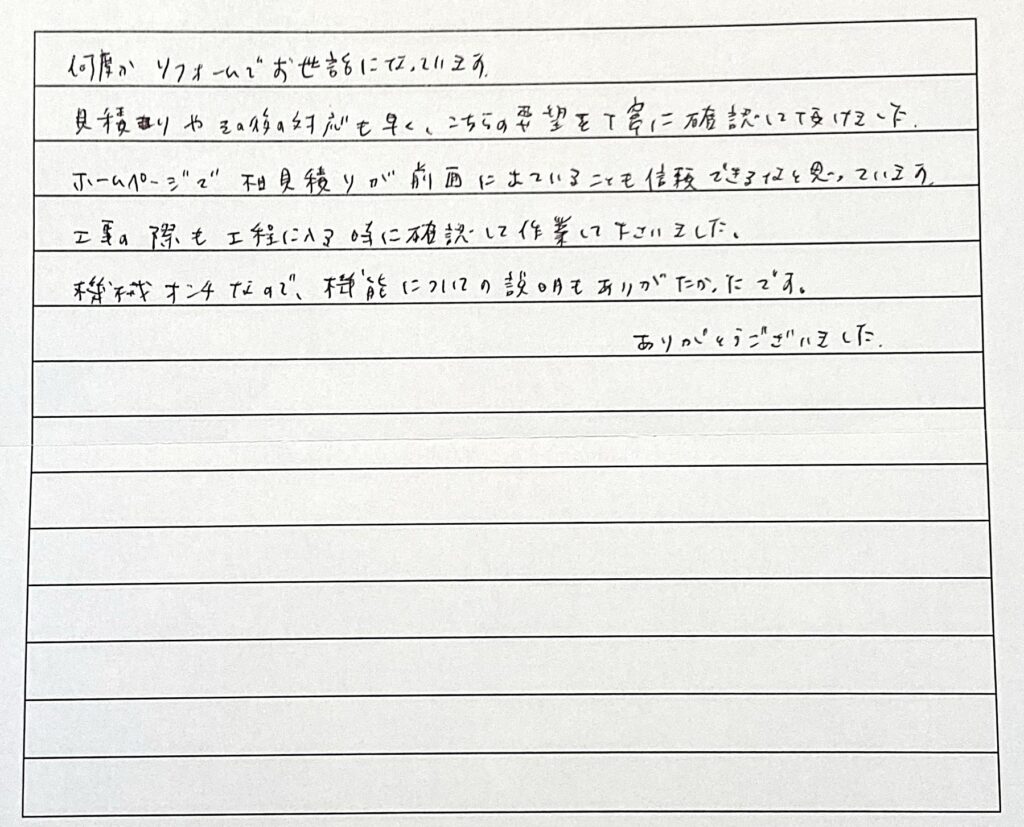 何度か リフォームでお世話になっています。
見積もりや その後の対応も早く、こちらの要望を丁寧に確認して下さいました。
ホームページで 相見積りが前面に出ていることも信頼できるなと思っています。
工事の際も工程に入る時に確認して作業して下さいました。
機械オンチなので、機能についての説明もありがたかったです。
ありがとうございました。